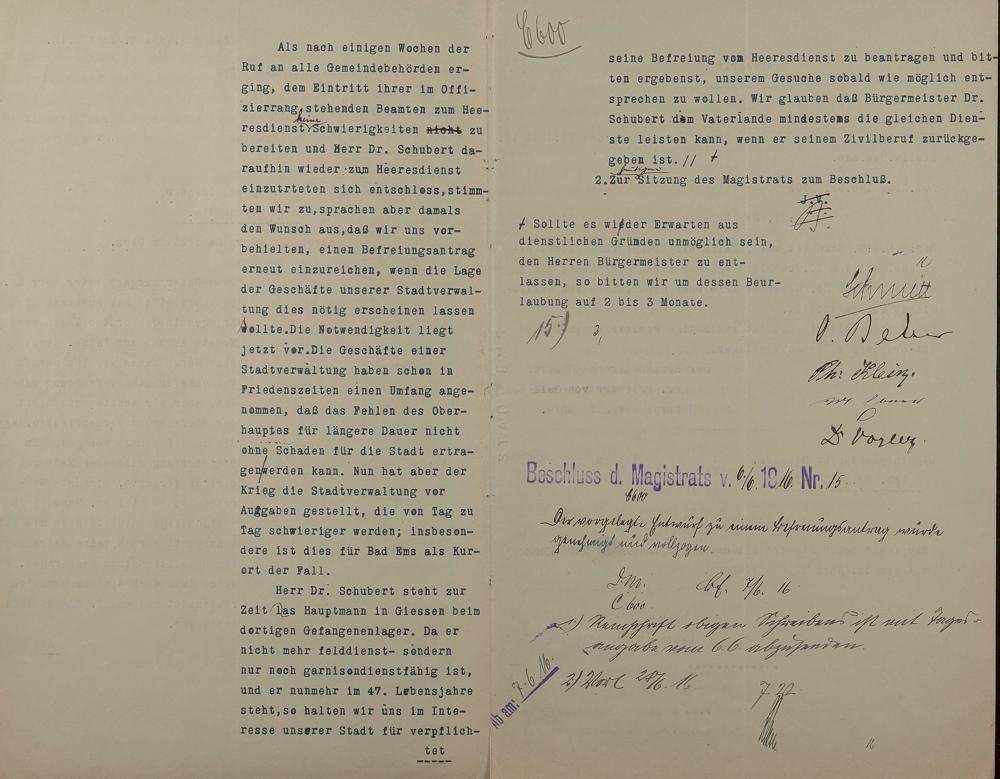 Als nach einigen Wochen der
Ruf an alle Gemeindebehörden er-
ging, dem Eintritt ihrer im Offi-
zierrang stehenden Beamten zum Hee-
resdienst keine Schwierigkeiten nicht zu
bereiten und Herr Dr. Schubert da-
raufhin wieder zum Heeresdienst
einzutrteten sich entschloss,stimm-
ten wir zu,sprachen aber damals
den Wunsch aus,daß wir uns vor-
behielten, einen Befreiungsantrag
erneut einzureichen, wenn die Lage
der Geschäfte unserer Stadtverwal-
tung dies nötig erscheinen lassen
sollte.Die Notwendigkeit liegt
jetzt vor.Die Geschäfte einer
Stadtverwaltung haben schon in
Friedenszeiten einen Umfang ange-
nommen, daß das Fehlen des Ober-
hauptes für längere Dauer nicht
ohne Schaden für die Stadt ertra-
gen werden kann. Nun hat aber der
Krieg die Stadtverwaltung vor
Aufgaben gestellt, die von Tag zu
Tag schwieriger werden; insbeson-
dere ist dies für Bad Ems als Kur-
ort der Fall.
Herr Dr. Schubert steht zur
Zeit las Hauptmann in Giessen beim
dortigen Gefangenenlager. Da er
nicht mehr felddienst- sondern
nur noch garnisondienstfähig ist,
und er nunmehr im 47. Lebensjahre
steht,so halten wir uns im Inte-
resse unserer Stadt für verpflich-
tet
C 600
seine Befreiung vom Heeresdienst zu beantragen und bit-
ten ergebenst, unserem Gesuche sobald wie möglich ent-
sprechen zu wollen. Wir glauben daß Bürgermeister Dr.
Schubert dem Vaterlande mindestens die gleichen Dien-
ste leisten kann, wenn er seinem Zivilberuf zurückge-
geben ist. // +
2.Zur heutigen Sitzung des Magistrats zum Beschluß.
+ Sollte es wieder Erwarten aus
dienstlichen Gründen unmöglich sein,
den Herren Bürgermeister zu ent-
lassen, so bitten wir um dessen Beur-
laubung auf 2 bis 3 Monate.
15)
3,
Schmitt
O. Beker
Ph. Klein
Dr Vogler
Beschluss d. Magistrats v. 6/6. 1916. Nr. 15
C600
Der vorgelegte Entwurf zu einem Befreiungsantrag wurde
genehmigt und vollzogen.
D. M. Bf. 7/6. 16
C 600.
1) Reinschrift obigen Schreibens ist mit Tages-
angabe vom 6.6 abzusenden.
2) Vorl 28/6. 16
Ab am: 7.6.16.